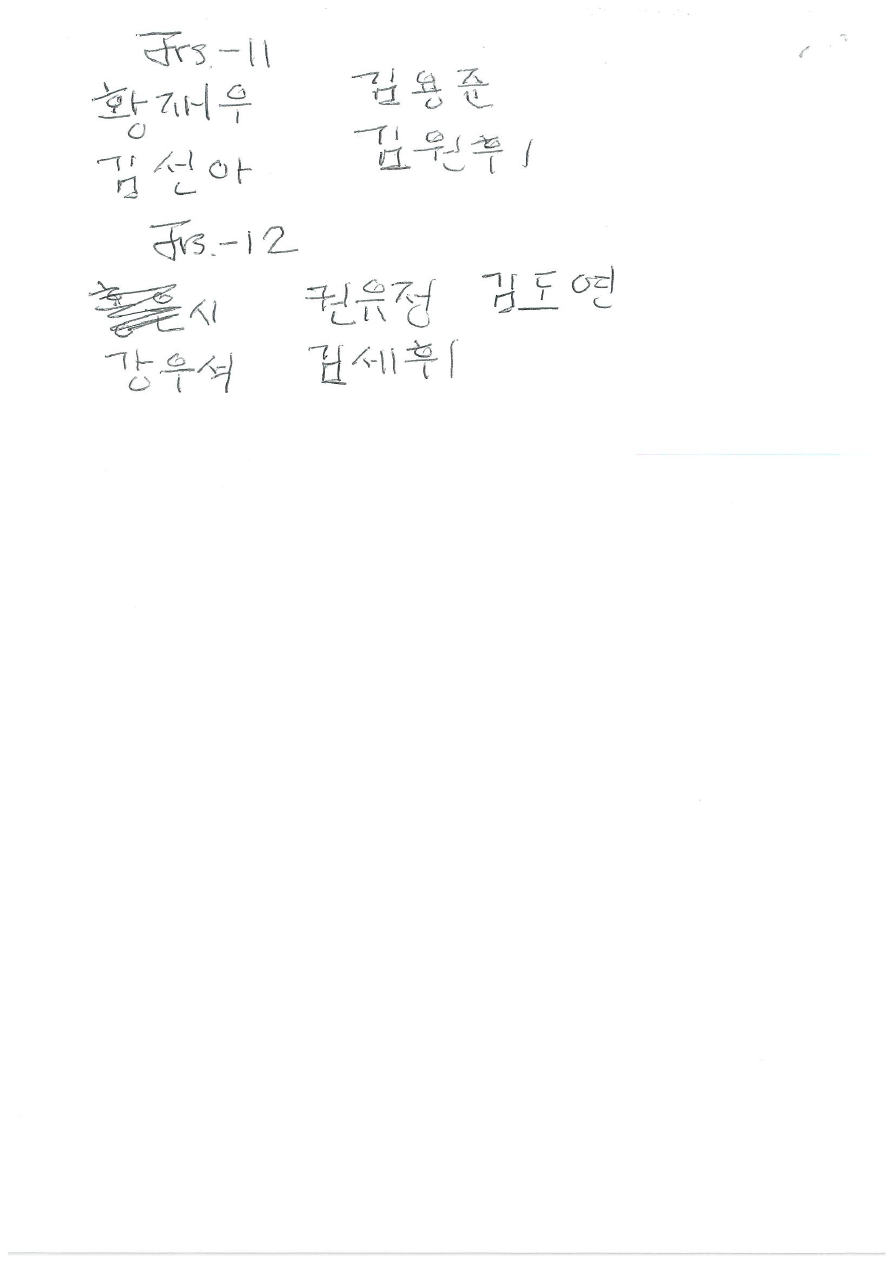 Jrs.-11
황재우 김용준
김선아 김원휘
Jrs.-12
시 권유정 김도연
강우석 김세휘